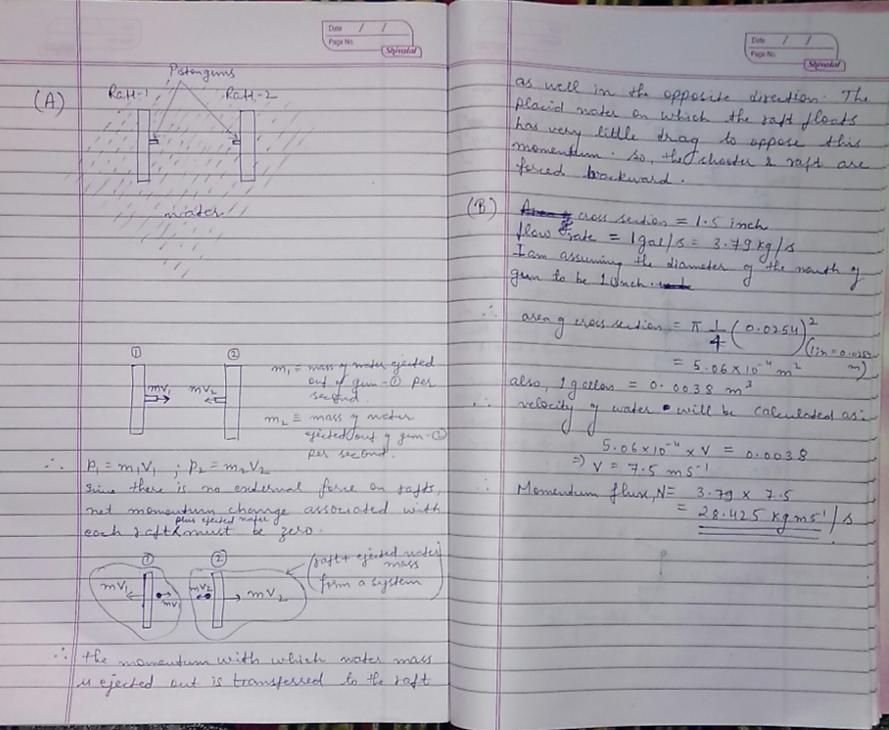 Date / /
Page No.
Shivalal
(A)
Piston guns
Raft-1 Raft-2
water
① ②
mv₁ mv₂
m₁ = mass of water ejected
out of gun-① per
second.
m₂ = mass of water
ejected out of gun-②
per second.
∴ p₁ = m₁v₁ ; p₂ = m₂v₂
Since there is no external force on rafts,
net momentum change associated with
each raft plus ejected water must be zero.
① ②
mv₁ mv₁ mv₂ mv₂
(raft + ejected water
mass
form a system)
∴ the momentum with which water mass
is ejected out is transferred to the raft
Date / /
Page No.
Shivalal
as well in the opposite direction. The
placid water on which the raft floats
has very little drag to oppose this
momentum. so, the shooter & raft are
forced backward.
(B) cross section = 1.5 inch
flow rate = 1 gal/s = 3.79 kg/s
I am assuming the diameter of the mouth of
gun to be 1 inch.
∴ area of cross section = π 1/4 (0.0254)²
(1 in = 0.0254
m)
= 5.06 × 10⁻⁴ m²
also, 1 gallon = 0.0038 m³
∴ velocity of water will be calculated as:
5.06 × 10⁻⁴ × V = 0.0038
⇒ V = 7.5 ms⁻¹
∴ Momentum flux, N = 3.79 × 7.5
= 28.425 kg ms⁻¹/s